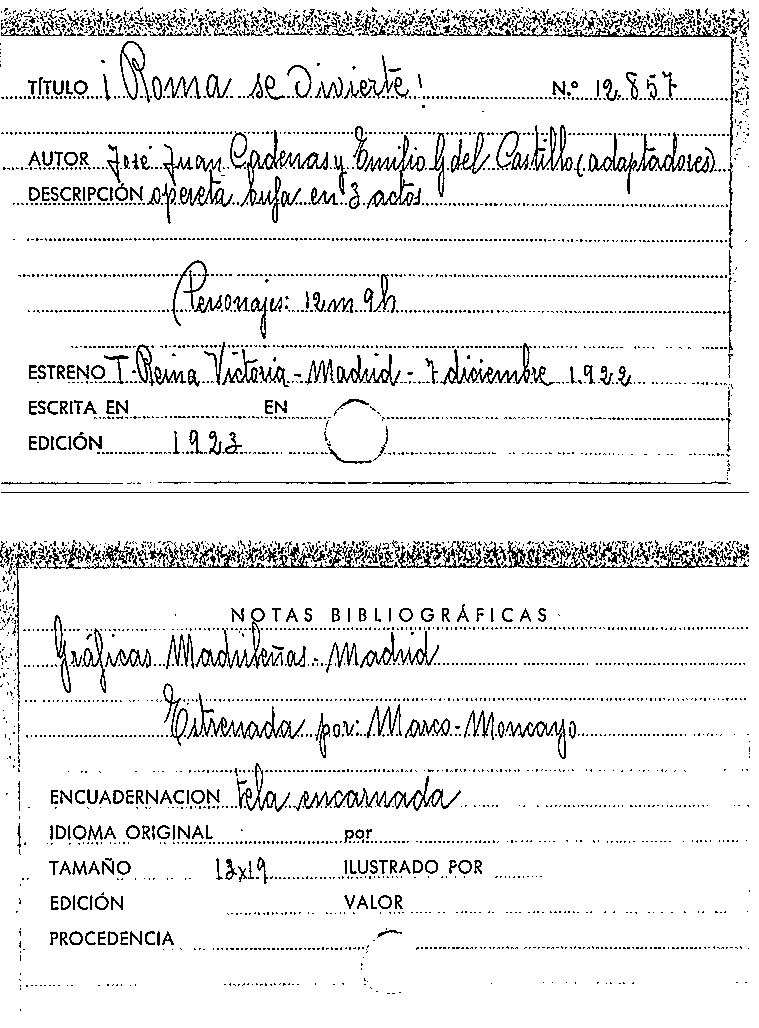 TÍTULO ¡Roma se divierte! N.º 12.857
AUTOR José Juan Cadenas y Emilio G del Castillo (adaptadores)
DESCRIPCIÓN opereta bufa en 3 actos
Personajes: 12m 9h
ESTRENO T. Reina Victoria - Madrid - 7 diciembre 1922
ESCRITA EN EN
EDICIÓN 1923
NOTAS BIBLIOGRÁFICAS
Gráficas Madrileñas - Madrid
Estrenada por: Marco - Moncayo
ENCUADERNACION tela encarnada
IDIOMA ORIGINAL por
TAMAÑO 13x19 ILUSTRADO POR
EDICIÓN VALOR
PROCEDENCIA